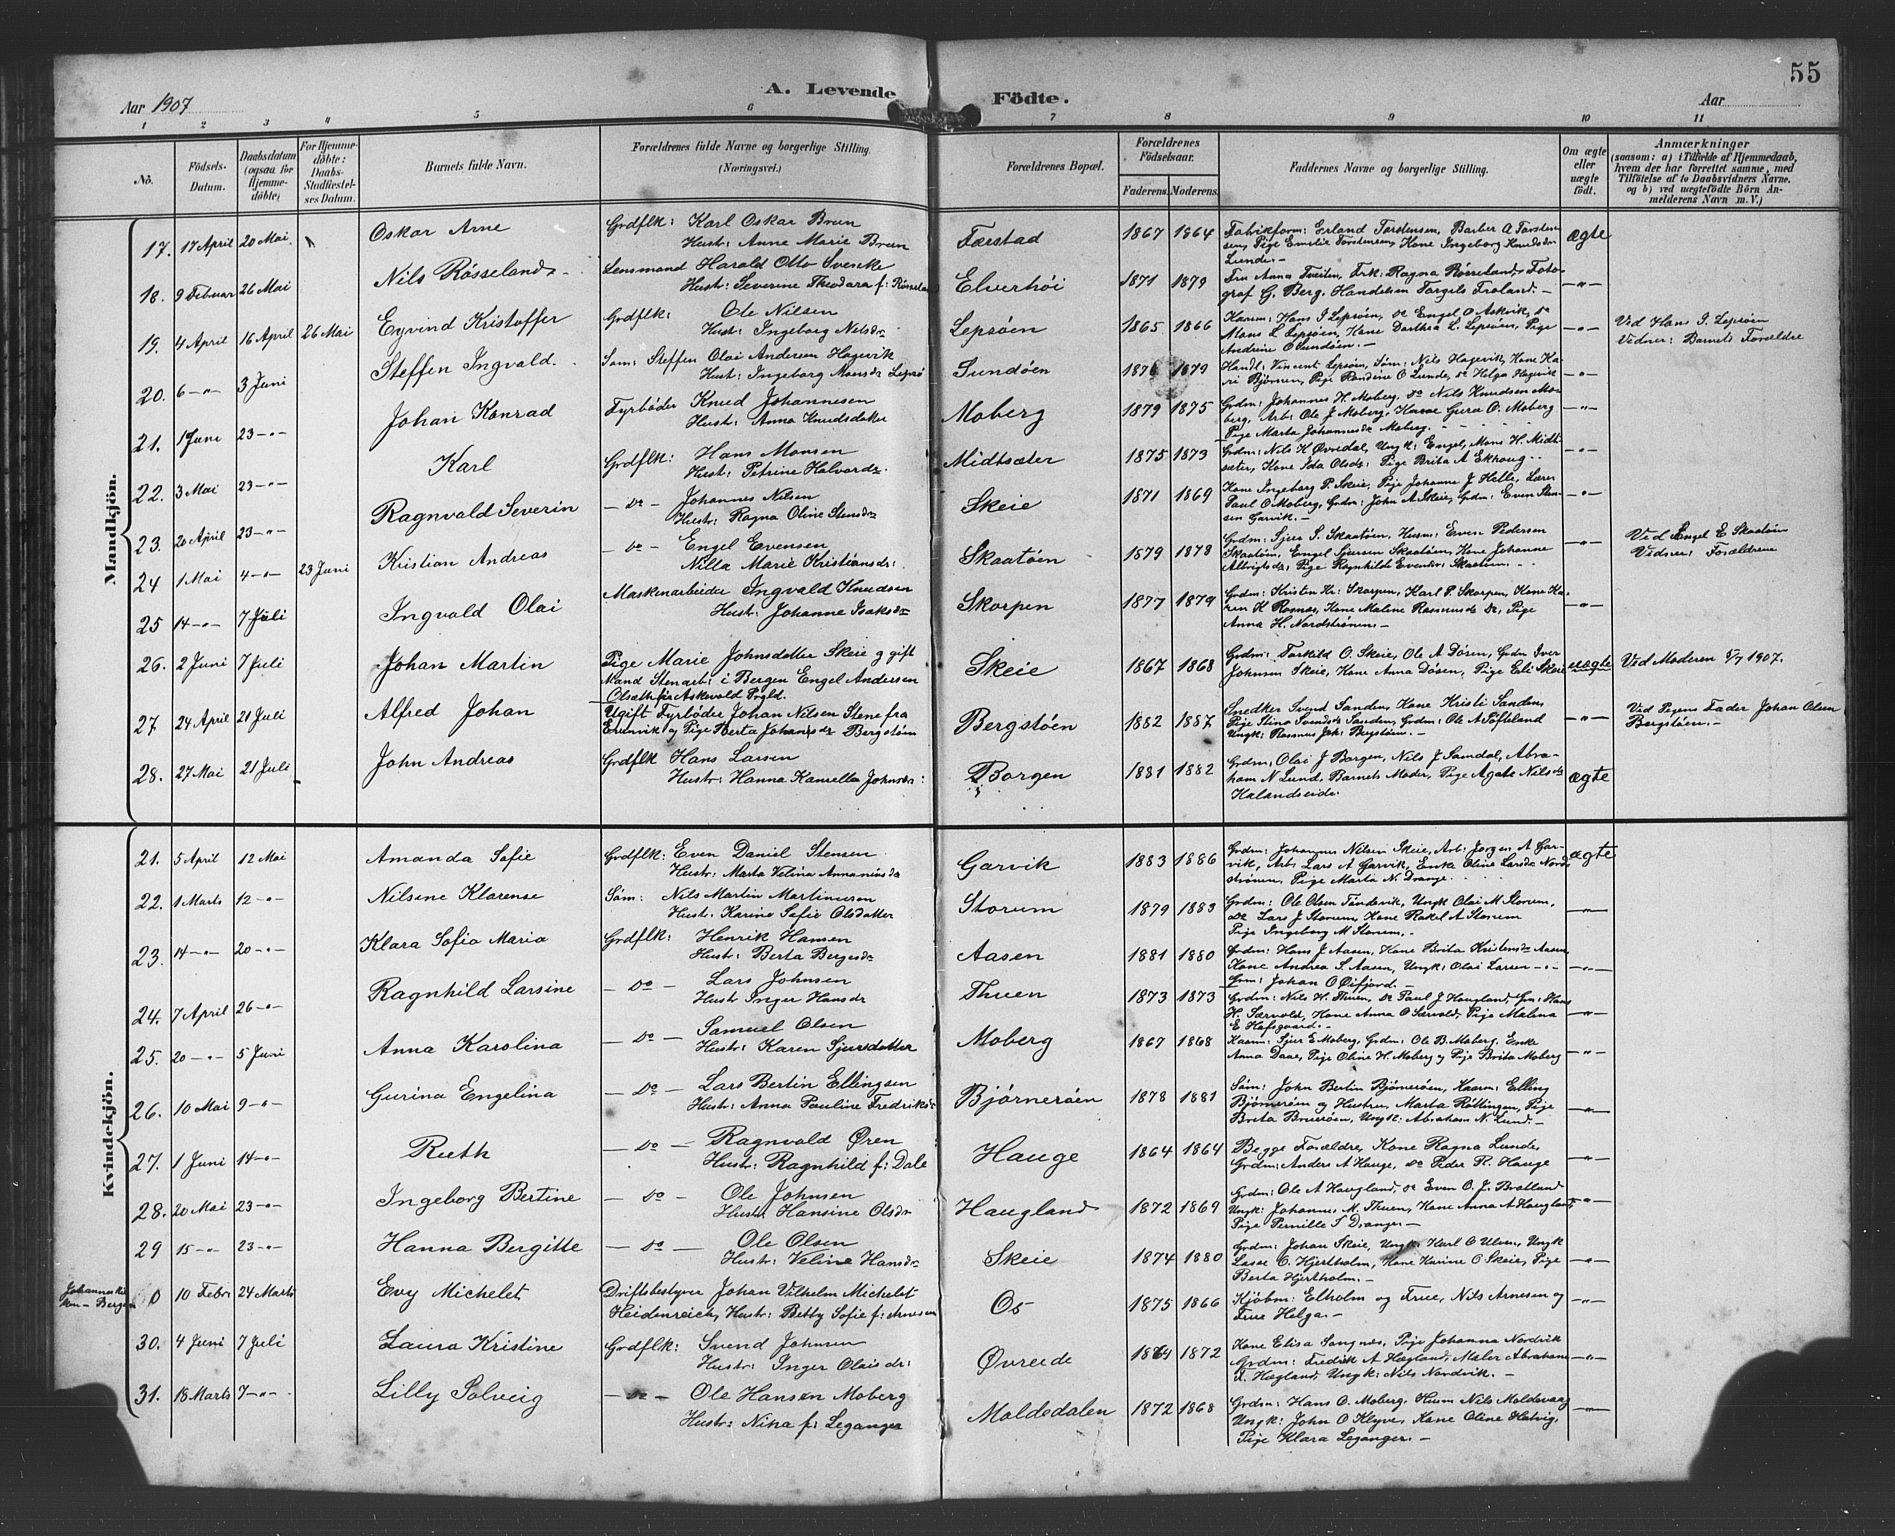 55
Aar 1907
A. Levende
Födte.
Aar
1 2 3 4 5 6 7 8 9 10 11
No.
Födsels-
Datum.
Daabsdatum
(ogsaa for
Hjemme-
döbte;
For Hjemme-
döbte:
Daabs-
Stadfæstel-
ses Datum.
Barnets fulde Navn.
Forældrenes fulde Navne og borgerlige Stilling.
(Næringsvei.)
Forældrenes Bopæl.
Forældrenes
Födselsaar.
Faderens.
Moderens.
Faddernes Navne og borgerlige Stilling.
Om ægte
eller
uægte
födt.
Anmærkninger
(saasom: a) i Tilfælde af Hjemmedaab,
hvem der har forrettet samme, med
Tilföielse af to Daabsvidners Navne.
og b) ved uægtefödte Börn An-
melderens Navn m. V.)
Mandkjön.
17. 17 April 20 Mai Oskar Arne
Grdflk: Karl Oskar Brun
Hustr: Anne Marie Brun
Færstad 1867 1864
Fabrikform: Erland Torstensen, Barber A Torsten-
sen, Pige Emilie Torstensen, Kone Ingeborg Knudsdr
Lunde.-
ægte
18. 9 Februar 26 Mai Nils Røsseland
Lensmand Harald Otto
Hustr: Severine Theodara f:
Elverhöi 1871 1879
Fru Anna Tveiten, Frk: Ragna Røsseland, Foto-
graf G. Berg, Handelsm Torgils Froland.-
-"-
19. 4 April 16 April 26 Mai Eyvind Kristoffer
Grdflk: Ole Nilsen
Hustr: Ingeborg Nilsdr
Lepsöen 1865 1866
Hans J Lepsöen, do Engel O Askvik, do
Mons L Lepsöen, Kone Dorthea L. Lepsöen, Pige
Andrine O Sundöen.-
-"-
Ved Hans J. Lepsöen
Vidner: Barnets Forældre
20. 6 -"- 3 Juni Steffen Ingvald.
Søm: Steffen Olai Andersen Hagevik
Hust: Ingeborg Monsdr Lepsö
Sundöen 1876 1879
Handl: Vincent Lepsöen, Søm: Nils Hagevik, Kone Ka-
ri Björnen, Pige Randine O Lunde, do Helga Hagevik
-"-
21. 1 Juni 23 -"- Johan Konrad
Fyrbøder Knud Johannesen
Hustr: Anna Knudsdatter
Moberg 1879 1875
Grdm: Johannes H. Moberg, do Nils Knudsen Mo-
berg, Arb: Ole J Moberg, Kone Guro O. Moberg
Pige Marta Johannesdr Moberg.
-"-
22. 3 Mai 23 -"- Karl
Grdflk: Hans Monsen
Hustr: Petrine Halvordr.
Midtsæter 1875 1873
Grdm: Nils H Øvredal, Ungk: Engel, Mons H. Midt-
sæter, Kone Ida Olsdr: Pige Brita A Ekhoug
-"-
23. 20 April 23 -"- Ragnvald Severin
- do - Johannes Nilsen
Hustr: Ragna Oline Stensdr
Skeie 1871 1869
Kone Ingeborg P. Skeie, Pige Johanne J Helle, Lærer
Paul O Moberg, Grdm: John A Skeie, Grdm: Even Sten-
sen Garvik.-
-"-
24 1 Mai 4 -"- 23 Juni Kristian Andreas
- do - Engel Evensen
Nilla Marie Kristiansdr:
Skaatöen 1879 1878
Grdm: Sjurs S. Skaatöen, Husm: Even Pedersen
Skaatöen, Engel Sjursen Skaatöen, Kone Johanne
Albrigtsdr, Pige Ragnhilde Evensdr Skaatöen.
-"-
Ved Engel E Skaatöen
Vidner: Forældrene
25 14 -"- 7 Juli Ingvald Olai
Maskinarbeider Ingvald Knudsen
Hust: Johanne Isaksdr
Skorpen 1877 1879
Grdm: Kristen Kr: Skorpen, Karl P. Skorpen, Kone Ka-
ren K Rosnes, Kone Maline Rasmusdr do, Pige
Anna H. Nordströnen-
-"-
26. 2 Juni 7 Juli Johan Martin
Pige Marie Johnsdatter Skeie g gift
Mand Stenarb: i Bergen Engel Andersen
Olsæth fra Askevold Prgld.
Skeie 1867 1868
Grdm: Torkild O. Skeie, Ole A Dösen, Grdm Iver
Johnsen Skeie, Kone Anna Dösen, Pige Eli Skeie
uægte
Ved Moderen 8/7 1907.
27 24 April 21 Juli Alfred Johan
Ugift Fyrbøder Johan Nilsen Stene fra
og Pige Berta Johansdr Bergstöen
Bergstöen 1882 1887
Snedker Svend Sanden, Kone Kristi Sanden,
Pige Stina Svendsdr Sanden, Grdm: Ole A Söfteland
Ungk: Rasmus Joh: Bergstöen.-
-"-
Ved Pigens Fader Johan Olsen
Bergstöen.-
28. 27 Mai 21 Juli John Andreas
Grdflk Hans Larsen
Hustr: Hanna Kamella Johnsdr:
Borgen 1881 1882
Grdm, Olai J Borgen, Nils J Samdal, Abra-
ham N Lund, Barnets Moder, Pige Agate Nilsdr
Halandseide.
ægte
Kvindekjön.
21. 5 April 12 Mai Amanda Sofie
Grdflk: Even Daniel Stensen
Hustr: Marta Velina Annaniasdr
Garvik 1883 1886
Grdm: Johannes Nilsen Skeie, Arb: Jörgen A Gar-
vik, Arb: Lars A Garvik, Enke Oline Larsdr Nord-
strönen, Pige Marta N. Drange
ægte
22. 1 Marts 12 -"- Nilsine Klarense
Søm: Nils Martin Martinusen
Hust. Karine Sofie Olsdatter
Storum 1879 1883
Grdm: Ole Olsen Tøndevik, Ungk Olai M Storum,
do Lars J Storum, Kone Rakel A Storum
Pige Ingeborg M Storum.-
-"-
23. 14 -"- 20 -"- Klara Sofia Maria
Grdflk: Henrik Hansen
Hustr: Berta Bergesdr
Aasen 1881 1880
Grdm: Hans J Aasen, Kone Brita Kristensdr Aasen
Kone Andrea S. Aasen, Ungk: Olai Larsen -"-
Grm: Johan O Öifjord.-
-"-
24. 7 April 26 -"- Ragnhild Larsine
- do - Lars Johnsen
Hustr Inger Hansdr
Thuen 1873 1873
Grdm: Nils H. Thuen, do Paul J Haugland, Grm: Hans
H. Særvold, Kone Anna O Særvold, Pige Malena
E Hafsgaard.-
-"-
25. 20 -"- 5 Juni Anna Karolina
- do - Samuel Olsen
Hustr: Karen Sjursdatter
Moberg 1867 1868
Kaarm: Sjur E Moberg, Grdm: Ole B. Moberg, Enke
Anna Daae, Pige Oline H. Moberg og Pige Brita Moberg
-"-
26. 10 Mai 9 -"- Gurina Engelina
- do - Lars Bertin Ellingsen
Hustr: Anna Pauline Fredriksdr
Björneröen 1878 1881
Søm: John Bertin Björneröen, Kaarm: Elling
Björneröen og Hustru, Marta Röttingen, Pige
Brita Bruaröen, Ungk: Abraham N. Lund.-
-"-
27. 1 Juni 14 -"- Ruth
- do - Ragnvald Ören
Hustr: Ragnhild f: Dale
Hauge 1864 1864
Begge Forældre, Kone Ragna Lunde,
Grdm: Anders A Hauge, do Peder R. Hauge
28. 20 Mai 23 -"- Ingeborg Bertine
- do - Ole Johnsen
Hustr: Hansine Olsdr
Haugland 1872 1869
Grdm: Ole A Haugland, do Even O. J. Bratland
Ungk: Johannes M. Thuen, Kone Anna A Haugland,
Pige Pernille S Dranger-
-"-
29 15 -"- 23 -"- Hanna Bergitte
- do - Ole Olsen
Hustr: Veline Hansdr
Skeie 1874 1880
Grdm: Johan Skeie, Ungk: Karl O Ulven, Ungk
Lasse O. Hjertholm, Kone Karine O Skeie, Pige
Berta Hjertholm.-
-"-
Bergen
10 Febr 24 Marts Evy Michelet
Driftsbestyrer Johan Vilhelm Michelet
Heidenreich, Hustr: Betty Sofie f: Arnesen
Os 1875 1866
Kjöbm: Elholm og Frue, Nils Arnesen og
Frue Helga.-
-"-
30. 4 Juni 7 Juli Laura Kristine
Grdflk: Svend Johnsen
Hustr: Inger Olaisdr:
Øvreide 1864 1872
Kone Elisa Sangnes, Pige Johanna Nordvik
Grdm: Fredrik A Hægland, Maler Abraham
L. Hægland, Ungk: Nils Nordvik.-
-"-
31. 18 Marts 7 -"- Lilly Solveig
- do - Ole Hansen Moberg
Hustr: Nina f: Leganger
Moldedalen 1872 1868
Grdm: Hans O. Moberg, Husm Nils Moldevaag
Ungk: John O Klyve, Kone Oline Hatvig,
Pige Klara Leganger.-
-"-